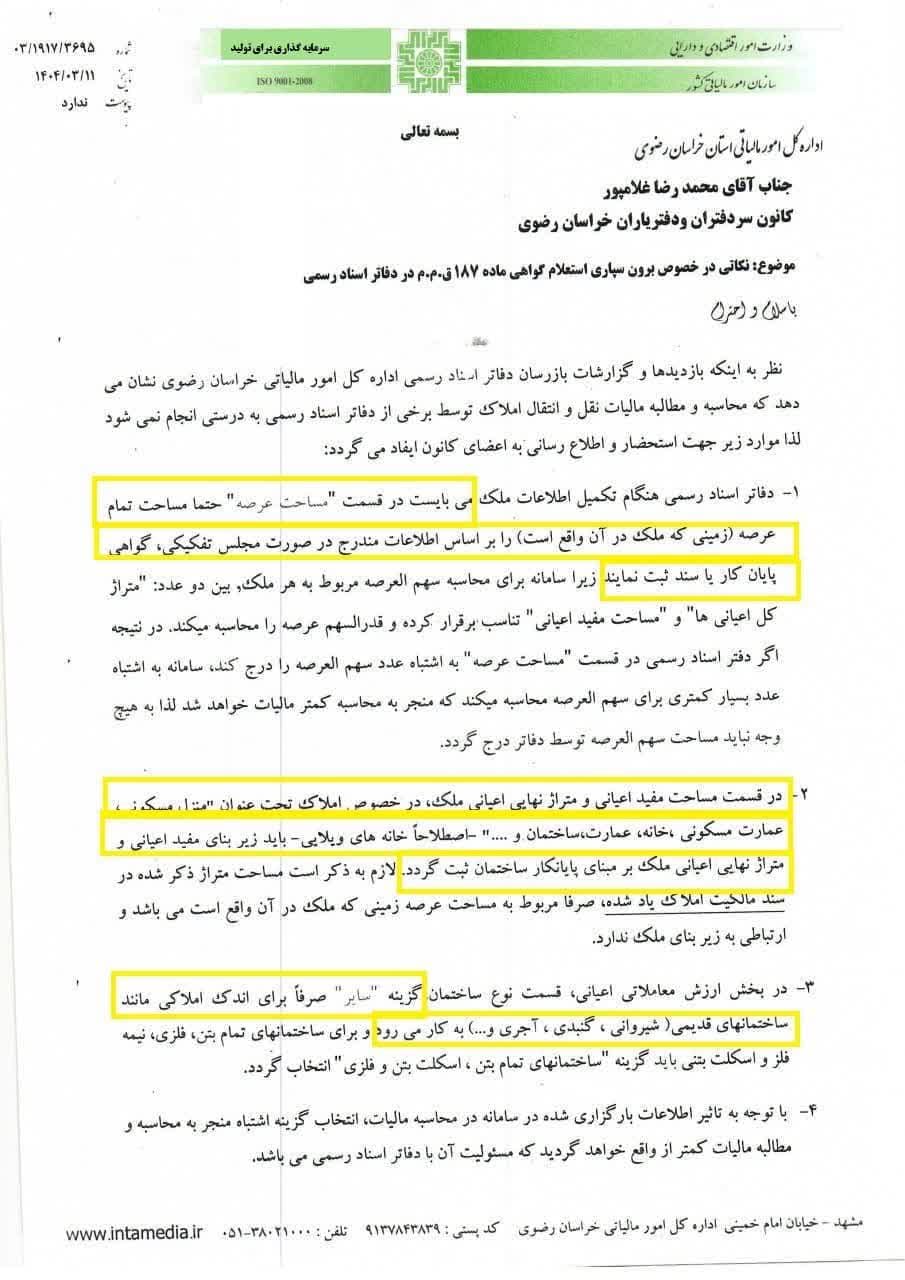 وزارت امور اقتصادی و دارایی
سازمان امور مالیاتی کشور
سرمایه گذاری برای تولید
ISO 9001-2008
شماره ۰۳/۱۹۱۷/۳۶۹۵
تاریخ ۱۴۰۴/۰۳/۱۱
پیوست ندارد
بسمه تعالی
اداره کل امور مالیاتی استان خراسان رضوی
جناب آقای محمد رضا غلامپور
کانون سردفتران ودفتریاران خراسان رضوی
موضوع: نکاتی در خصوص برون سپاری استعلام گواهی ماده ۱۸۷ ق.م.م در دفاتر اسناد رسمی
باسلام و احترام
نظر به اینکه بازدیدها و گزارشات بازرسان دفاتر اسناد رسمی اداره کل امور مالیاتی خراسان رضوی نشان می
دهد که محاسبه و مطالبه مالیات نقل و انتقال املاک توسط برخی از دفاتر اسناد رسمی به درستی انجام نمی شود
لذا موارد زیر جهت استحضار و اطلاع رسانی به اعضای کانون ایفاد می گردد:
۱- دفاتر اسناد رسمی هنگام تکمیل اطلاعات ملک می بایست در قسمت "مساحت عرصه" حتما مساحت تمام
عرصه (زمینی که ملک در آن واقع است) را بر اساس اطلاعات مندرج در صورت مجلس تفکیکی، گواهی
پایان کار یا سند ثبت نمایند زیرا سامانه برای محاسبه سهم العرصه مربوط به هر ملک, بین دو عدد: "متراژ
کل اعیانی ها" و "مساحت مفید اعیانی" تناسب برقرار کرده و قدرالسهم عرصه را محاسبه میکند. در نتیجه
اگر دفتر اسناد رسمی در قسمت "مساحت عرصه" به اشتباه عدد سهم العرصه را درج کند، سامانه به اشتباه
عدد بسیار کمتری برای سهم العرصه محاسبه میکند که منجر به محاسبه کمتر مالیات خواهد شد لذا به هیچ
وجه نباید مساحت سهم العرصه توسط دفاتر درج گردد.
۲- در قسمت مساحت مفید اعیانی و متراژ نهایی اعیانی ملک، در خصوص املاک تحت عنوان "منزل مسکونی،
عمارت مسکونی ،خانه، عمارت،ساختمان و ...." -اصطلاحاً خانه های ویلایی- باید زیر بنای مفید اعیانی و
متراژ نهایی اعیانی ملک بر مبنای پایانکار ساختمان ثبت گردد. لازم به ذکر است مساحت متراژ ذکر شده در
سند مالکیت املاک یاد شده، صرفا مربوط به مساحت عرصه زمینی که ملک در آن واقع است می باشد و
ارتباطی به زیر بنای ملک ندارد.
۳- در بخش ارزش معاملاتی اعیانی، قسمت نوع ساختمان گزینه "سایر" صرفاً برای اندک املاکی مانند
ساختمانهای قدیمی( شیروانی ، گنبدی ، آجری و...) به کار می رود و برای ساختمانهای تمام بتن، فلزی، نیمه
فلز و اسکلت بتنی باید گزینه "ساختمانهای تمام بتن ، اسکلت بتن و فلزی" انتخاب گردد.
۴- با توجه به تاثیر اطلاعات بارگزاری شده در سامانه در محاسبه مالیات، انتخاب گزینه اشتباه منجر به محاسبه و
مطالبه مالیات کمتر از واقع خواهد گردید که مسئولیت آن با دفاتر اسناد رسمی می باشد.
مشهد - خیابان امام خمینی اداره کل امور مالیاتی خراسان رضوی کد پستی : ۹۱۳۷۸۴۳۸۳۹ تلفن : ۳۸۰۲۱۰۰۰-۰۵۱ www.intamedia.ir